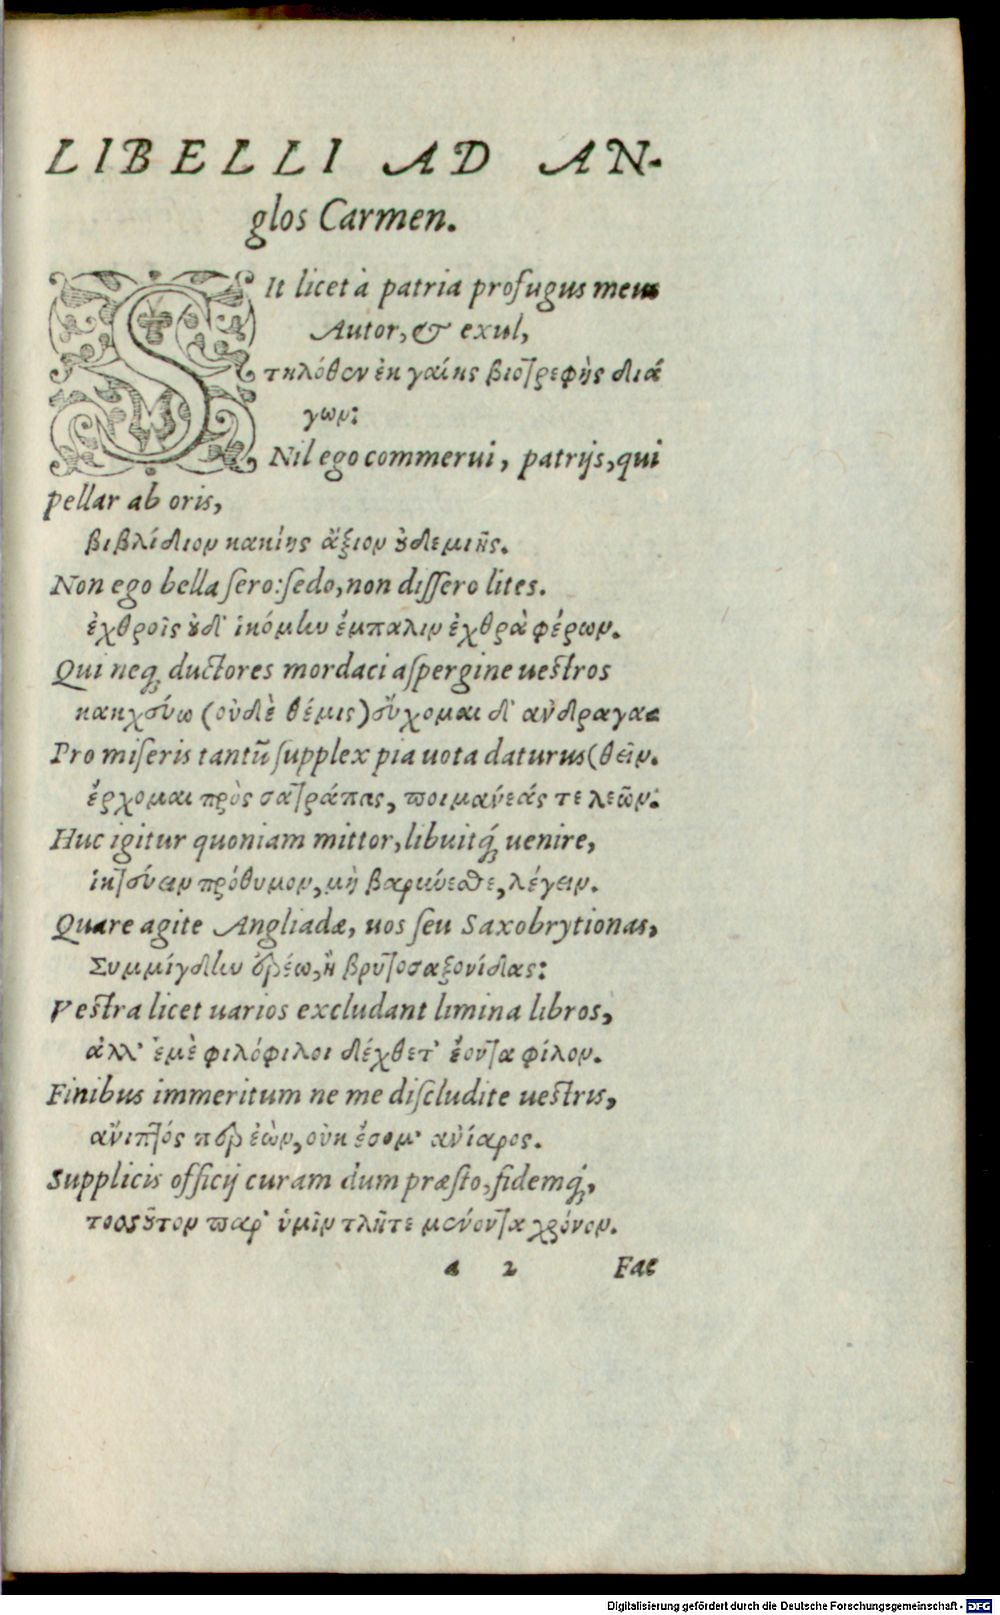 LIBELLI AD AN-
glos Carmen.
SIt licet à patria profugus meus
Autor, & exul,
τηλόθεν ἐκ γαίης βιοτρεφὴς διά
γων:
Nil ego commerui, patrijs, qui
pellar ab oris,
βιβλίδιον κακίης ἄξιον ȣδεμιῆς.
Non ego bella sero: sedo, non dissero lites.
ἐχθροῖς ȣδ' ἱκόμην ἔμπαλιν ἐχθρὰ φέρων.
Qui neq; ductores mordaci aspergine uestros
(οὐδὲ θέμις) εὔχομαι δ' ἀνδραγα-
Pro miseris tantũ supplex pia uota daturus (θεῖν.
ἔρχομαι πρὸς σατράπας, ποιμανέας τε λεῶν:
Huc igitur quoniam mittor, libuitq́; uenire,
πρόθυμον, μὴ βαρύνεσθε, λέγειν.
Quare agite Angliadæ, uos seu Saxobrytionas,
Συμμίγδην ἐρέω, ἢ βρυτοσαξονίδας:
Vestra licet uarios excludant limina libros,
ἀλλ' ἐμὲ φιλόφιλοι δέχθετ' ἔοντα φίλον.
Finibus immeritum ne me discludite uestris,
οὐκ ἔσομ' ἀνίαρος.
Supplicis officij curam dum præsto, fidemq́;,
τοσȣ̃τον παρ' ὑμῖν τλῆτε μένοντα χρόνον.
a 2 Fac
Digitalisierung gefördert durch die Deutsche Forschungsgemeinschaft - DFG